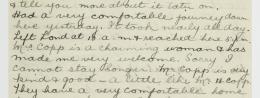 & tell you more about it later on.
Had a very comfortable journey down
here yesterday. It took nearly all day.
Left Lond at 10 a.m & reached here 5 p.m.
Mrs Copp is a charming woman & has
made me very welcome. Sorry I
cannot stay longer. Mr Copp is very
kind & good — a little like Mr H Copp
They have a very comfortable home